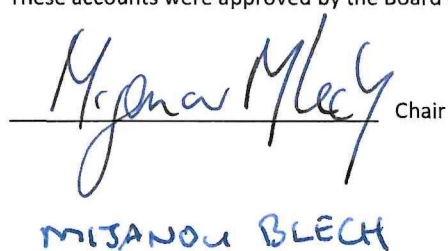 These accounts were approved by the Board
Chair
MIJANOU BLECH